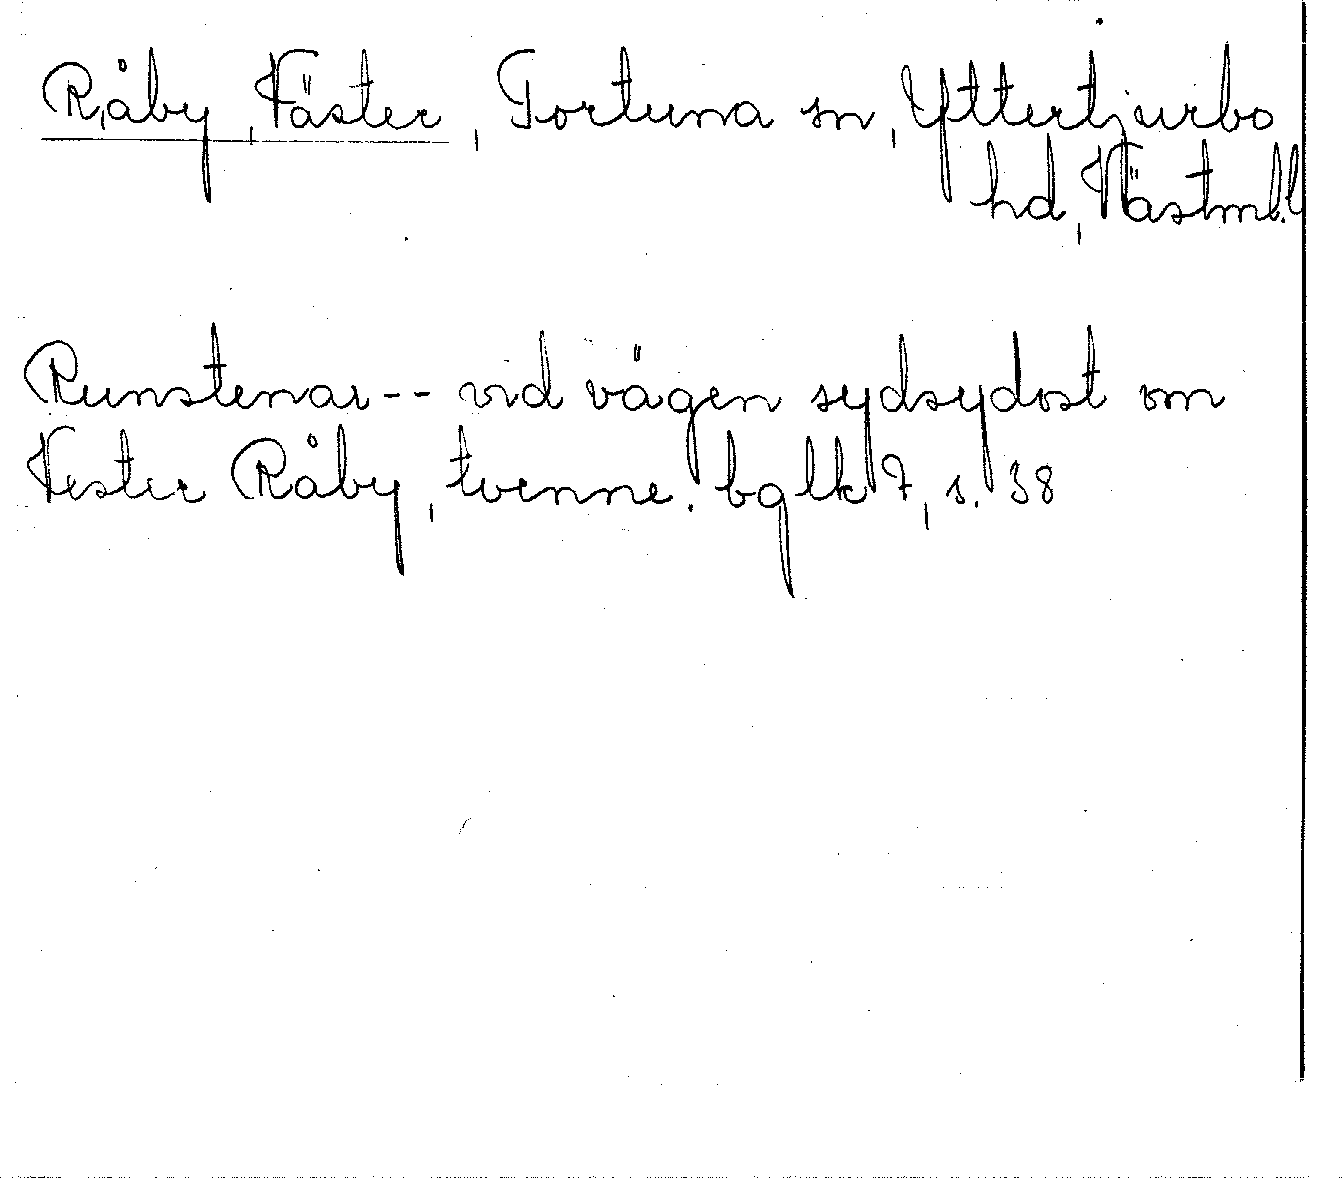 Råby, Väster, Tortuna sn, Yttertjurbo
hd, Västml.
Runstenar -- vid vägen sydsydost om
Vester Råby, tvenne. bglk 7, s. 38